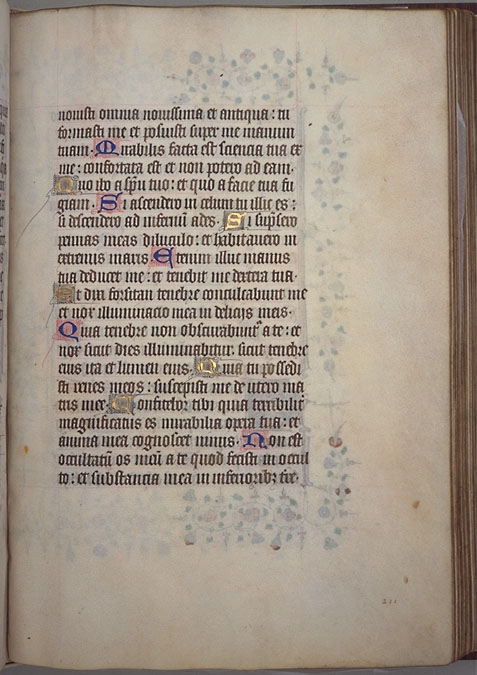 novisti omnia novissima et antiqua : tu
formasti me et posuisti super me manum
tuam. Mirabilis facta est sciencia tua ex
me : confortata est et non potero ad eam.
Quo ibo a spū tuo : et quo a facie tua fu
giam. Si ascendero in celum tu illic es :
si descendero ad infernū ades. Si sūpsero
pennas meas diluculo : et habitavero in
extremis maris. Etenim illuc manus
tua deducet me : et tenebit me dextera tua.
Et dixi forsitan tenebre conculcabunt me
et nox illuminacio mea in delicijs meis.
Quia tenebre non obscurabunt a te : et
nox sicut dies illuminabitur. sicut tenebre
eius ita et lumen eius. Quia tu possedi
sti renes meos : suscepisti me de utero ma
tris mee. Confitebor tibi quia terribilit
magnificatus es mirabilia opera tua : et
anima mea cognoscet nimis. Non est
occultatū os meū a te quod fecisti in occul
to : et substancia mea in inferioribz tre.
211